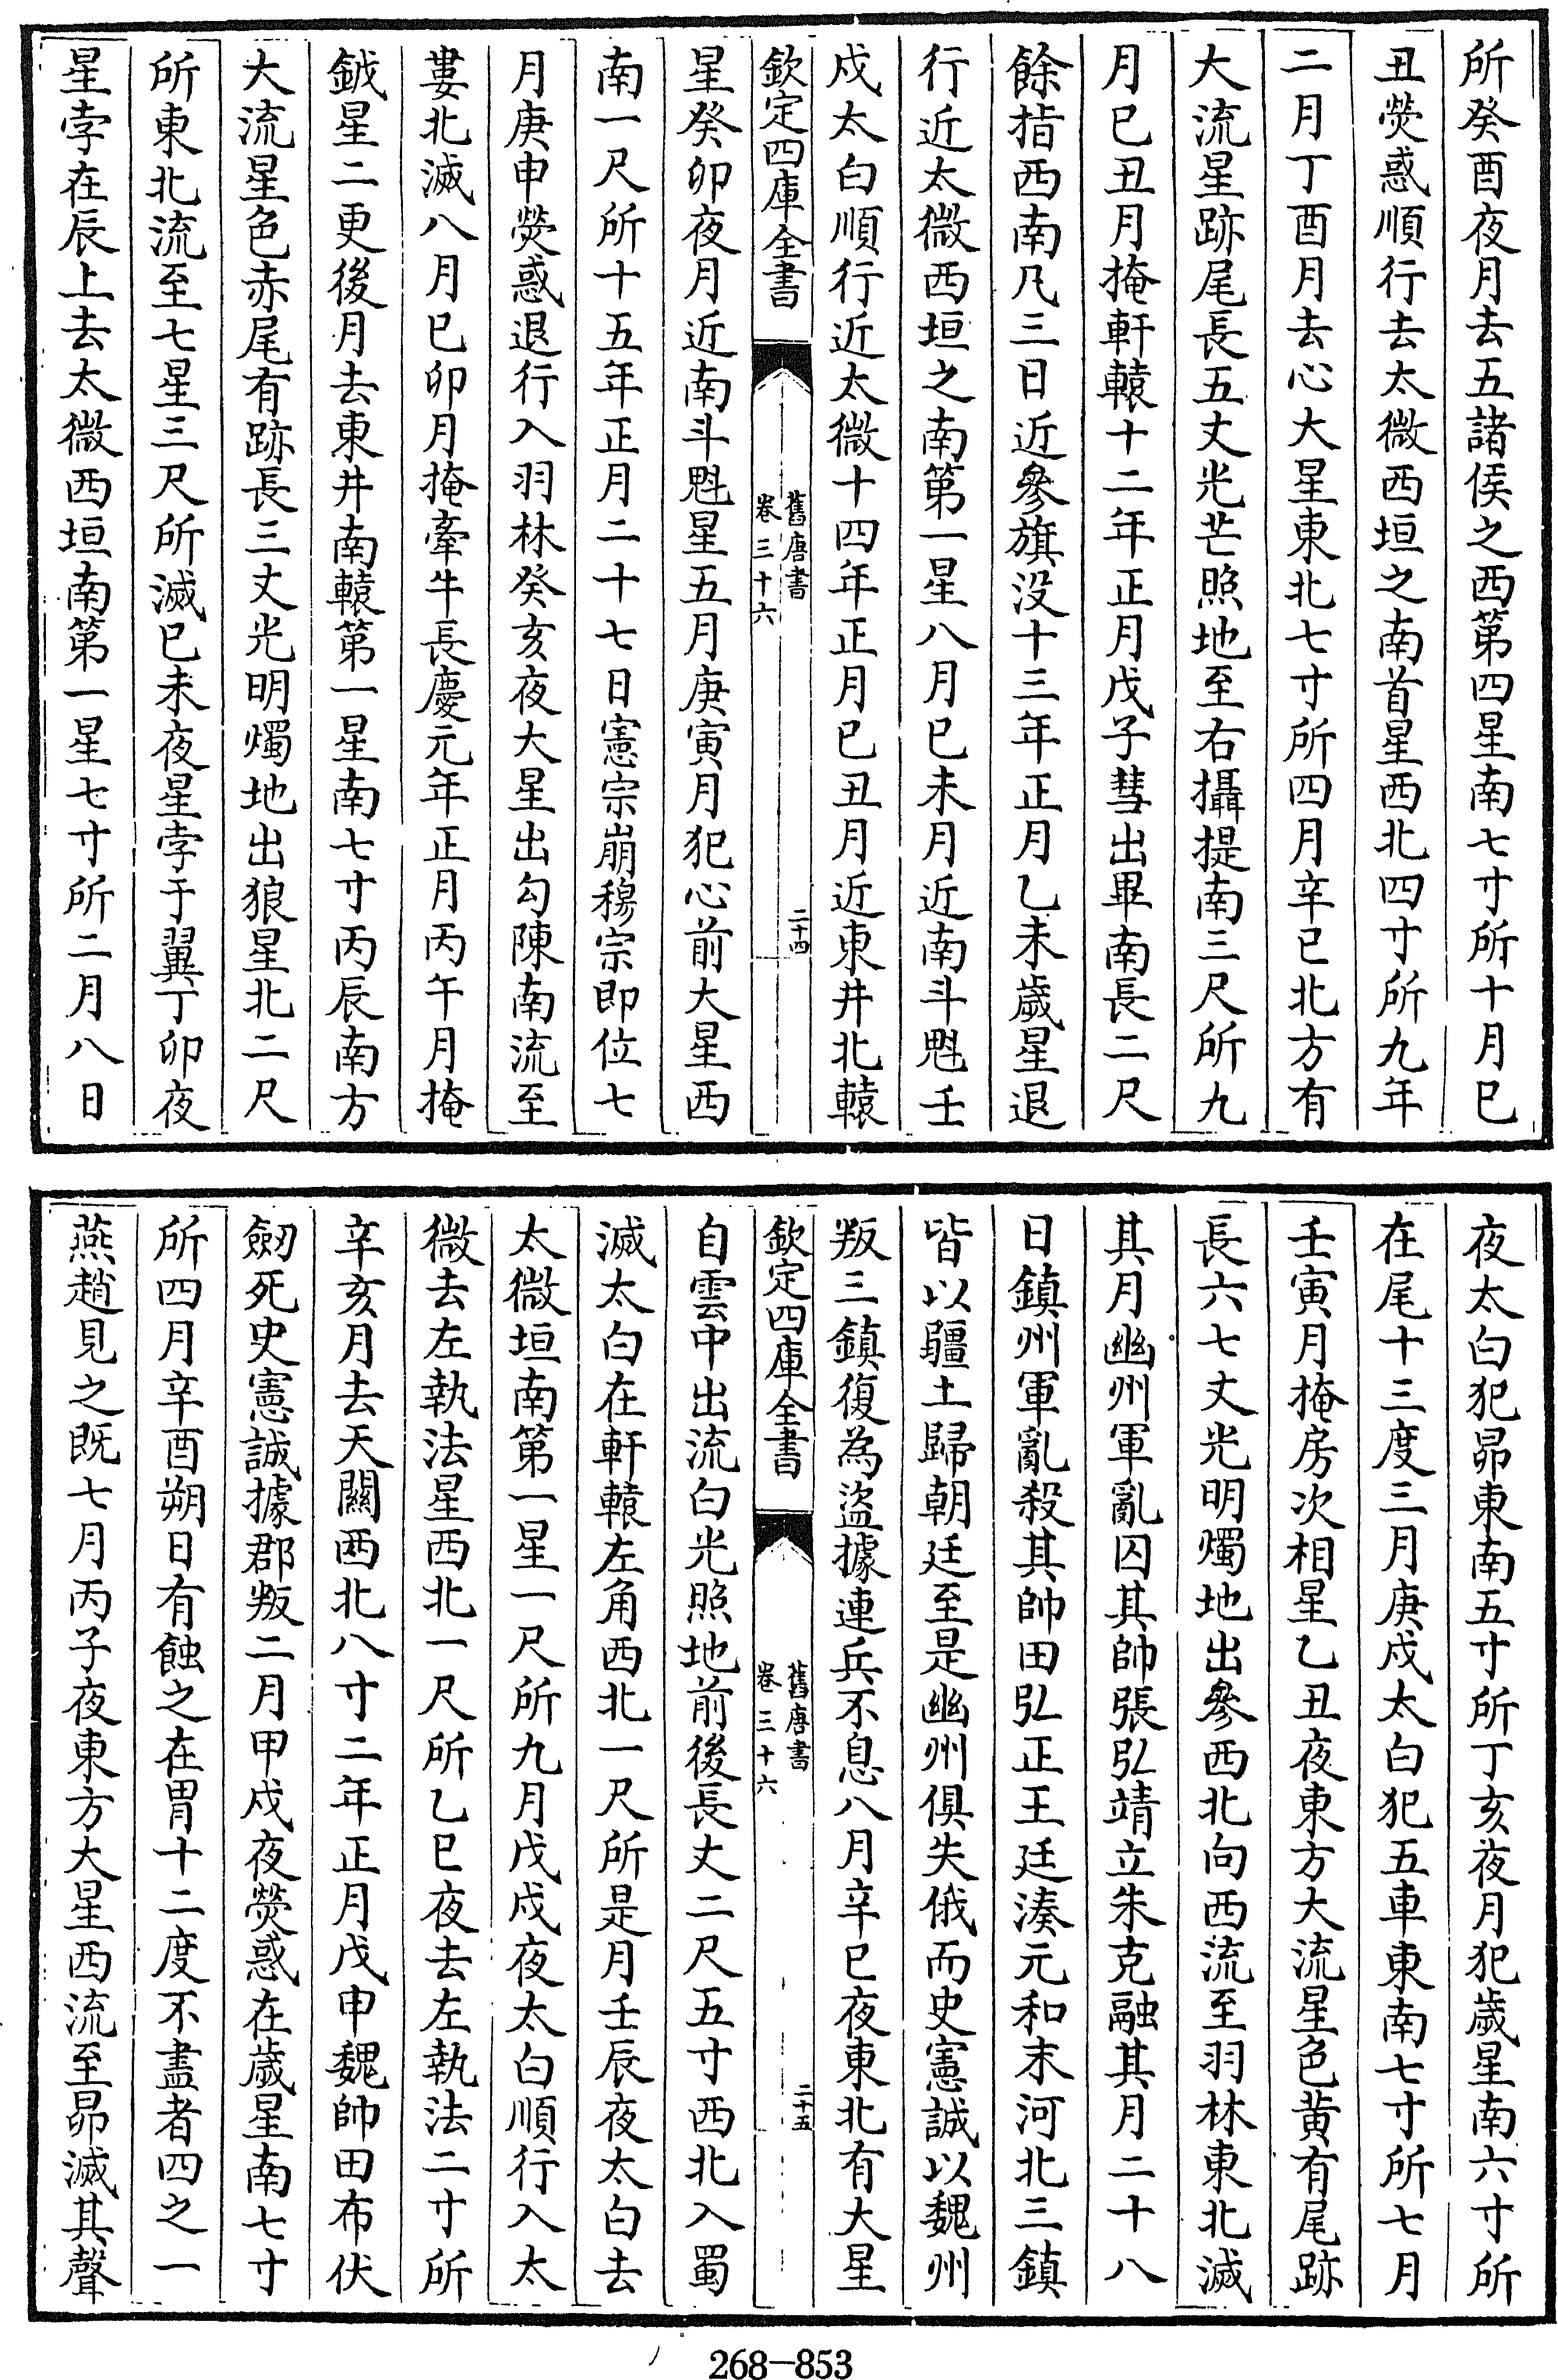 所癸酉夜月去五諸侯之西第四星南七寸所十月巳
丑熒惑順行去太微西垣之南首星西北四寸所九年
二月丁酉月去心大星東北七寸所四月辛巳北方有
大流星跡尾長五丈光芒照地至右攝提南三尺所九
月巳丑月掩軒轅十二年正月戊子彗出畢南長二尺
餘指西南凡三日近參旗没十三年正月乙未歲星退
行近太微西垣之南第一星八月巳未月近南斗魁壬
戍太白順行近太微十四年正月巳丑月近東井北轅
欽定四庫全書
舊唐書
卷三十六
二十四
星癸卯夜月近南斗魁星五月庚寅月犯心前大星西
南一尺所十五年正月二十七日憲宗崩穆宗即位七
月庚申熒惑退行入羽林癸亥夜大星出勾陳南流至
婁北滅八月巳卯月掩牽牛長慶元年正月丙午月掩
鉞星二更後月去東井南轅第一星南七寸丙辰南方
大流星色赤尾有跡長三丈光明燭地出狼星北二尺
所東北流至七星三尺所滅巳未夜星孛于翼丁卯夜
星孛在辰上去太微西垣南第一星七寸所二月八日
夜太白犯昴東南五寸所丁亥夜月犯歲星南六寸所
在尾十三度三月庚戍太白犯五車東南七寸所七月
壬寅月掩房次相星乙丑夜東方大流星色黄有尾跡
長六七丈光明燭地出參西北向西流至羽林東北滅
其月幽州軍亂囚其帥張弘靖立朱克融其月二十八
日鎮州軍亂殺其帥田弘正王廷湊元和末河北三鎮
皆以疆土歸朝廷至是幽州俱失俄而史憲誠以魏州
叛三鎮復為盜據連兵不息八月辛巳夜東北有大星
欽定四庫全書
舊唐書
卷三十六
二十五
自雲中出流白光照地前後長丈二尺五寸西北入蜀
滅太白在軒轅左角西北一尺所是月壬辰夜太白去
太微垣南第一星一尺所九月戊戍夜太白順行入太
微去左執法星西北一尺所乙巳夜去左執法二寸所
辛亥月去天關西北八寸二年正月戊申魏帥田布伏
劒死史憲誠據郡叛二月甲戍夜熒惑在歲星南七寸
所四月辛酉朔日有蝕之在胃十二度不盡者四之一
燕趙見之既七月丙子夜東方大星西流至昴滅其聲
268-853